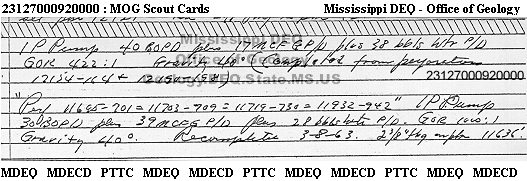 23127000920000 : MOG Scout Cards Mississippi DEQ - Office of Geology
Mississippi DEQ
IP Pump 40 BOPD plus 17 MCFGP/D plus 38 bbls wtr P/D
GOR 422:1 Gravity 40° (Completed from perforations
Office of Geology
12154-164 +
Geology.DEQ.State.MS.US
23127000920000
"Perf 11695-701 = 11703-709 = 11719-730 = 11932-942" IP Pump
30 BOPD plus 39 MCFG P/D plus 28 bbls wtr P/D. GOR 1000:1
Gravity 40°. Recompleted 3-8-63. 2 3/8" tbg 11636'.
MDEQ MDECD PTTC MDEQ MDECD PTTC MDEQ MDECD PTTC MDEQ MDECD